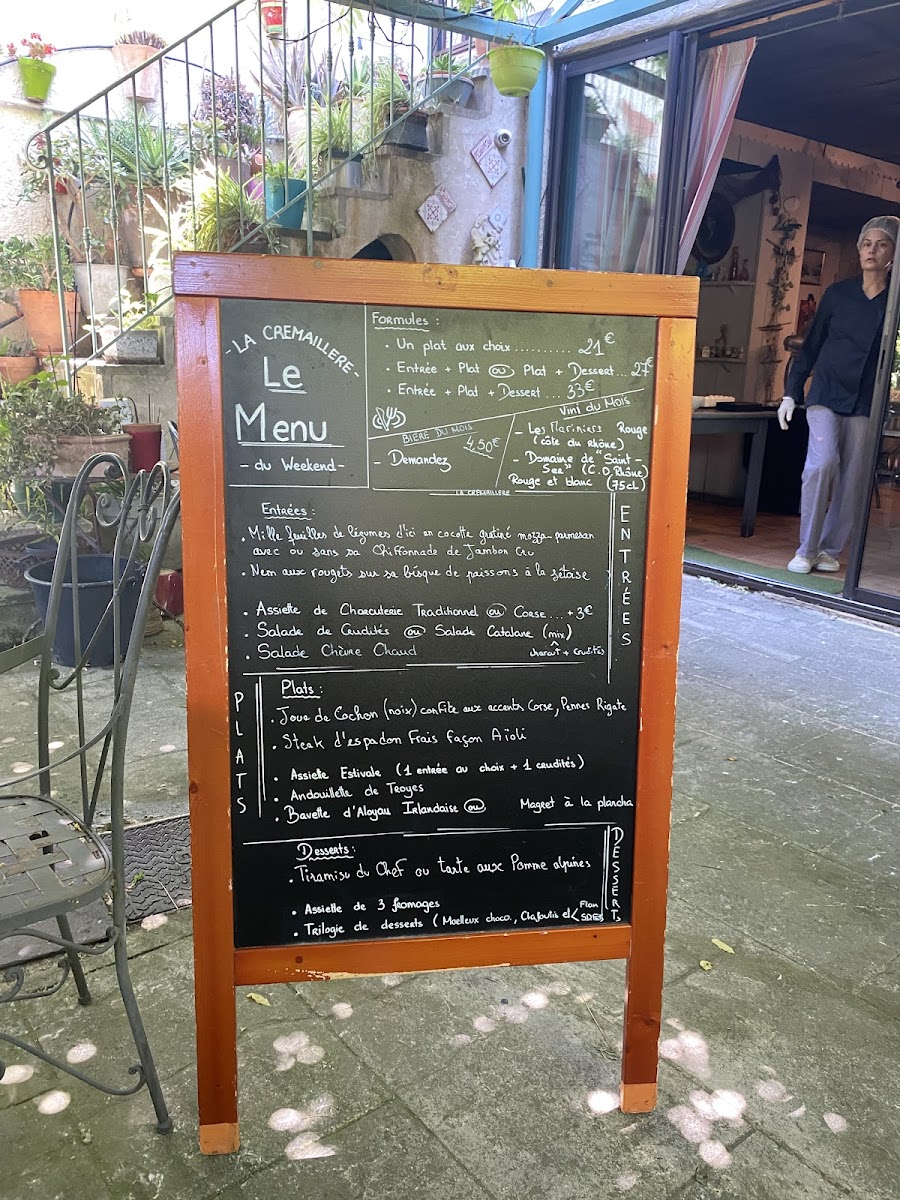 - LA CREMAILLERE -
Le
Menu
- du Weekend -
Formules :
• Un plat aux choix .......... 21€
• Entrée + Plat ou Plat + Dessert ... 27€
• Entrée + Plat + Dessert ... 33€
BIERE DU MOIS
- Demandez
4,50€
Vini du Mois
- Les Mariniers Rouge
(côte du Rhône)
- Domaine de "Saint-
See" (C.D.Rhône)
Rouge et blanc (75cL)
LA CREMAILLERE
ENTRÉES
Entrées :
• Mille feuilles de légumes d'ici en cocotte gratiné mozza-parmesan
avec ou sans sa Chiffonnade de Jambon Cru
• Nem aux rougets sur sa bisque de poissons à la setoise
• Assiette de Charcuterie Traditionnel ou Corse ... + 3€
• Salade de Crudités ou Salade Catalane (mix)
charcut + crudités
• Salade Chèvre Chaud
PLATS
Plats :
• Joue de Cochon (noix) confite aux accents Corse, Pennes Rigate
• Steak d'espadon Frais façon Aïoli
• Assiette Estivale (1 entrée au choix + 1 crudités)
• Andouillette de Troyes
• Bavette d'Aloyau Irlandaise ou Magret à la plancha
DESSERTS
Desserts :
• Tiramisu du Chef ou tarte aux Pomme alpines
• Assiette de 3 fromages
• Trilogie de desserts (Moelleux choco., Clafoutis et Flan